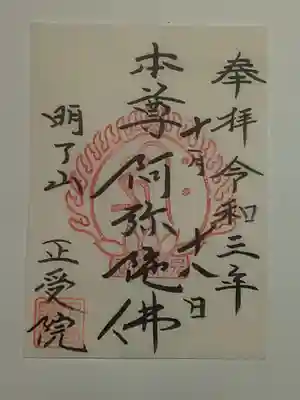 奉拝令和三年
十月十八日
本尊阿弥陀佛
明了山正受院